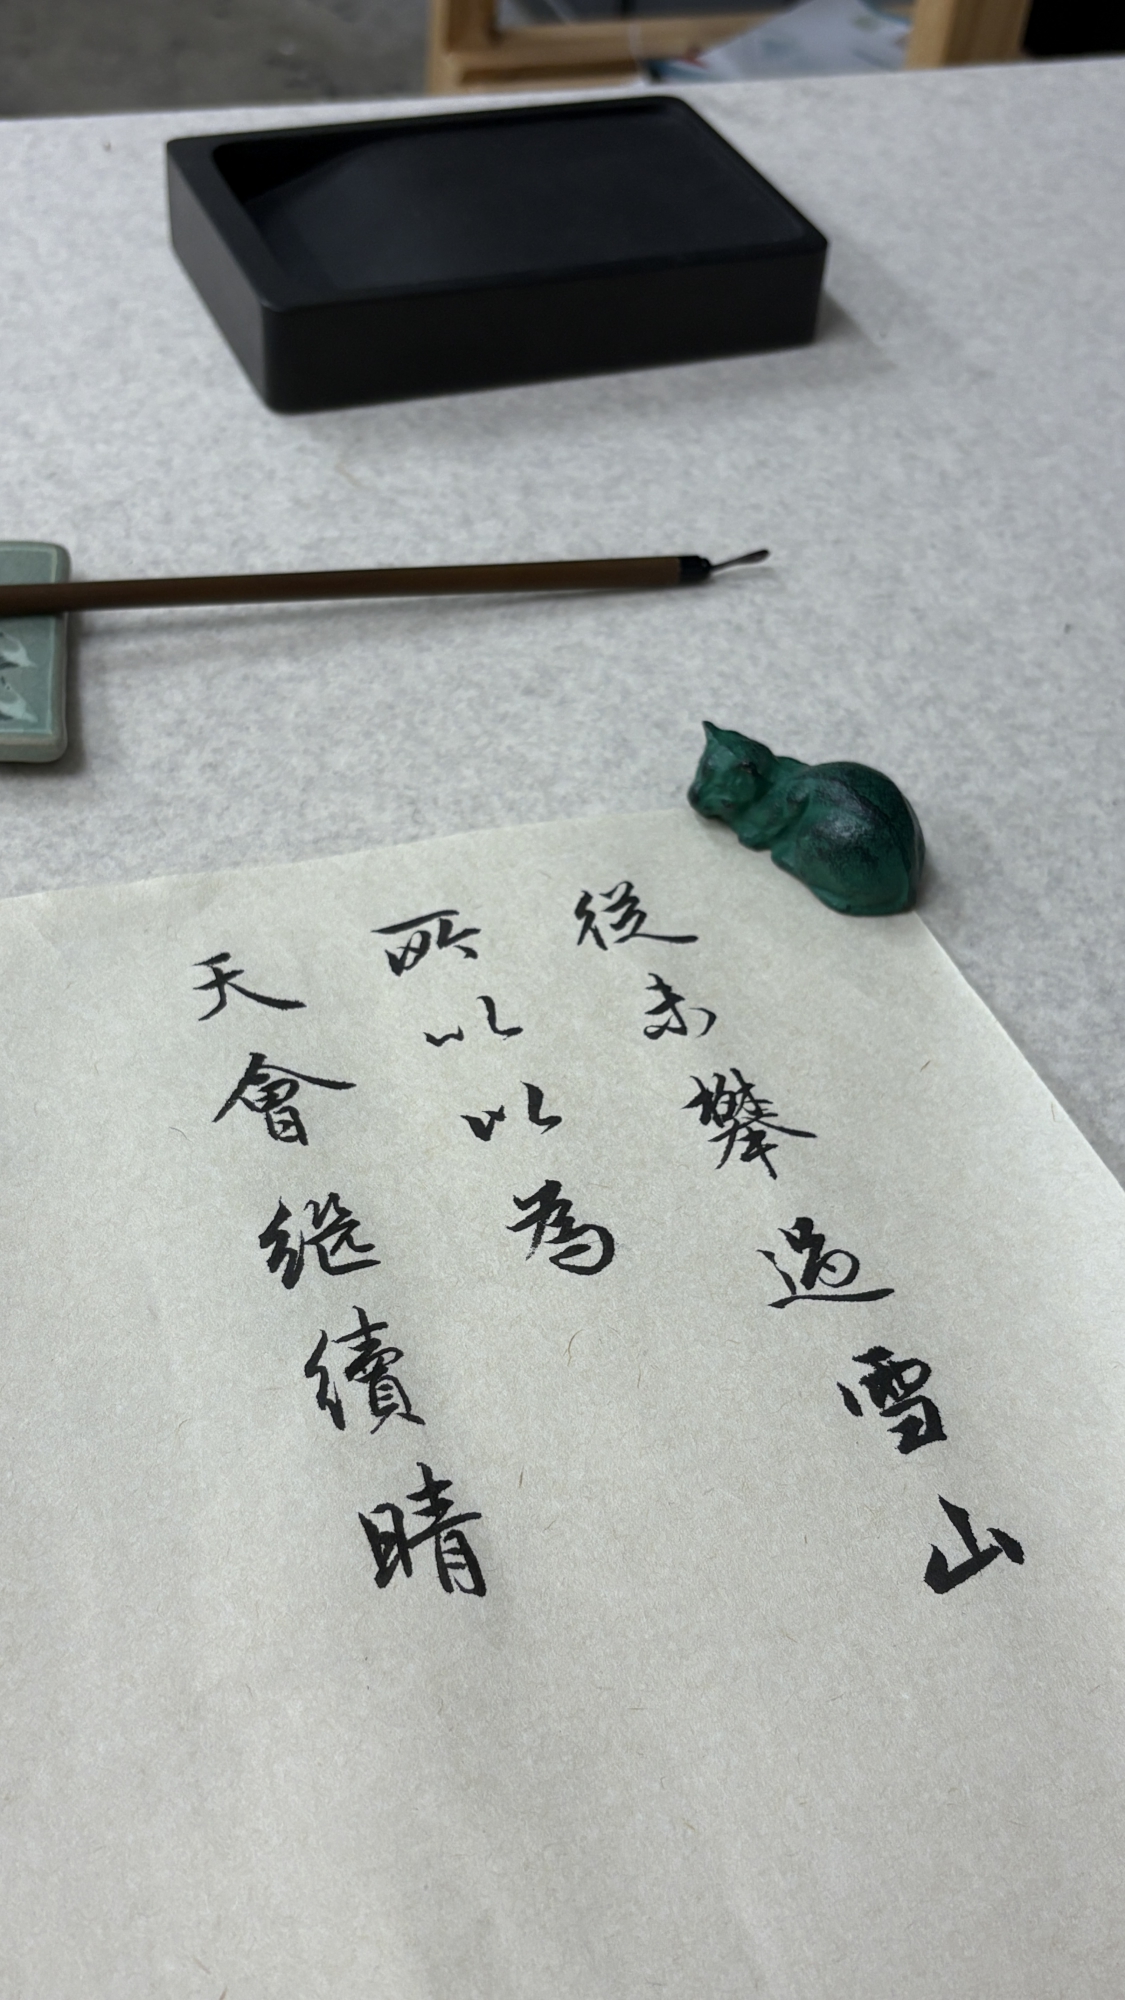 從未攀過雪山
所以以為
天會繼續晴